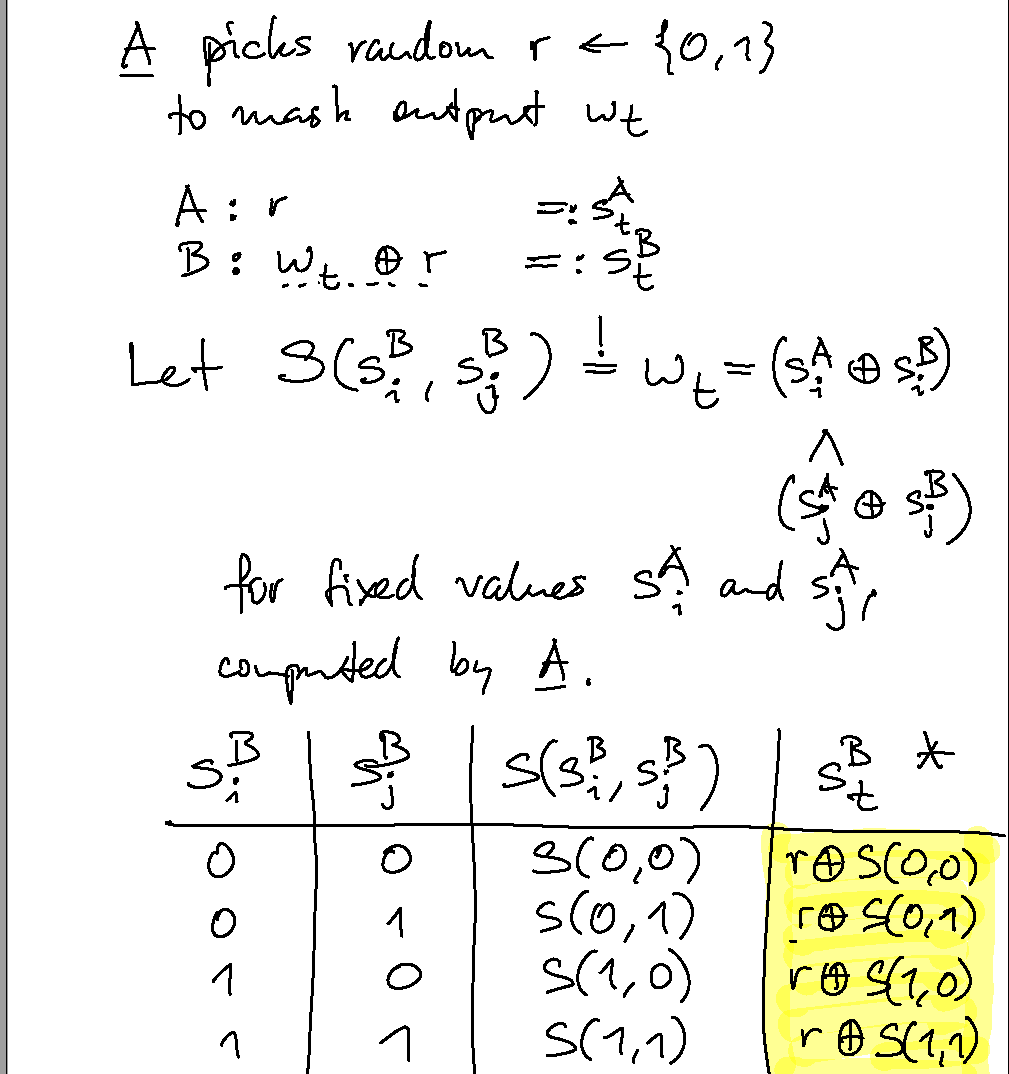 A picks random r ← {0,1}
to mask output w_t
A : r =: s_t^A
B : w_t ⊕ r =: s_t^B
Let S(s_i^B, s_j^B) =! w_t = (s_i^A ⊕ s_i^B)
∧
(s_j^A ⊕ s_j^B)
for fixed values s_i^A and s_j^A,
computed by A.
s_i^B | s_j^B | S(s_i^B, s_j^B) | s_t^B *
0 | 0 | S(0,0) | r ⊕ S(0,0)
0 | 1 | S(0,1) | r ⊕ S(0,1)
1 | 0 | S(1,0) | r ⊕ S(1,0)
1 | 1 | S(1,1) | r ⊕ S(1,1)